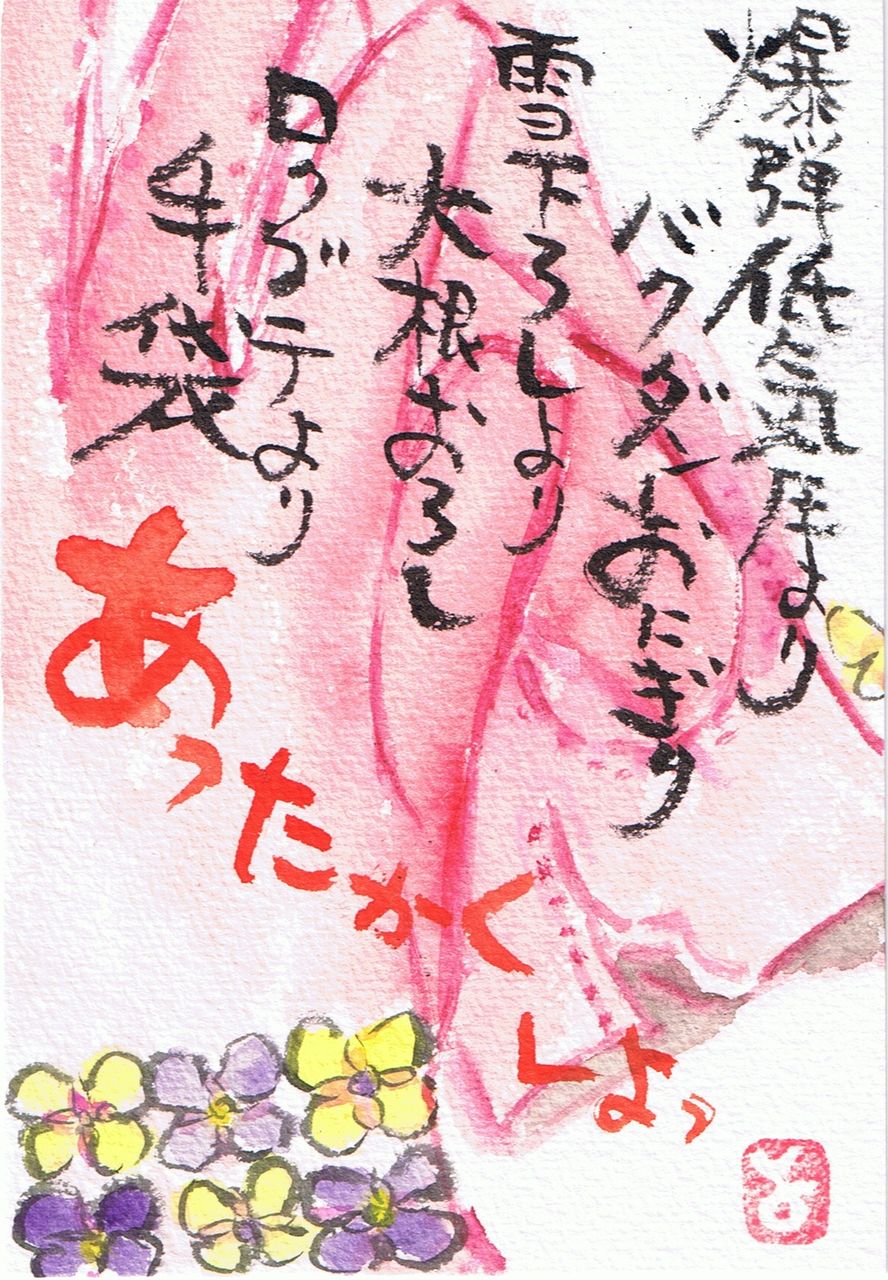 爆弾低気圧より
バクダンおにぎり
雪下ろしより
大根おろし
ロンゴテより
手袋
あったかく
しよっ